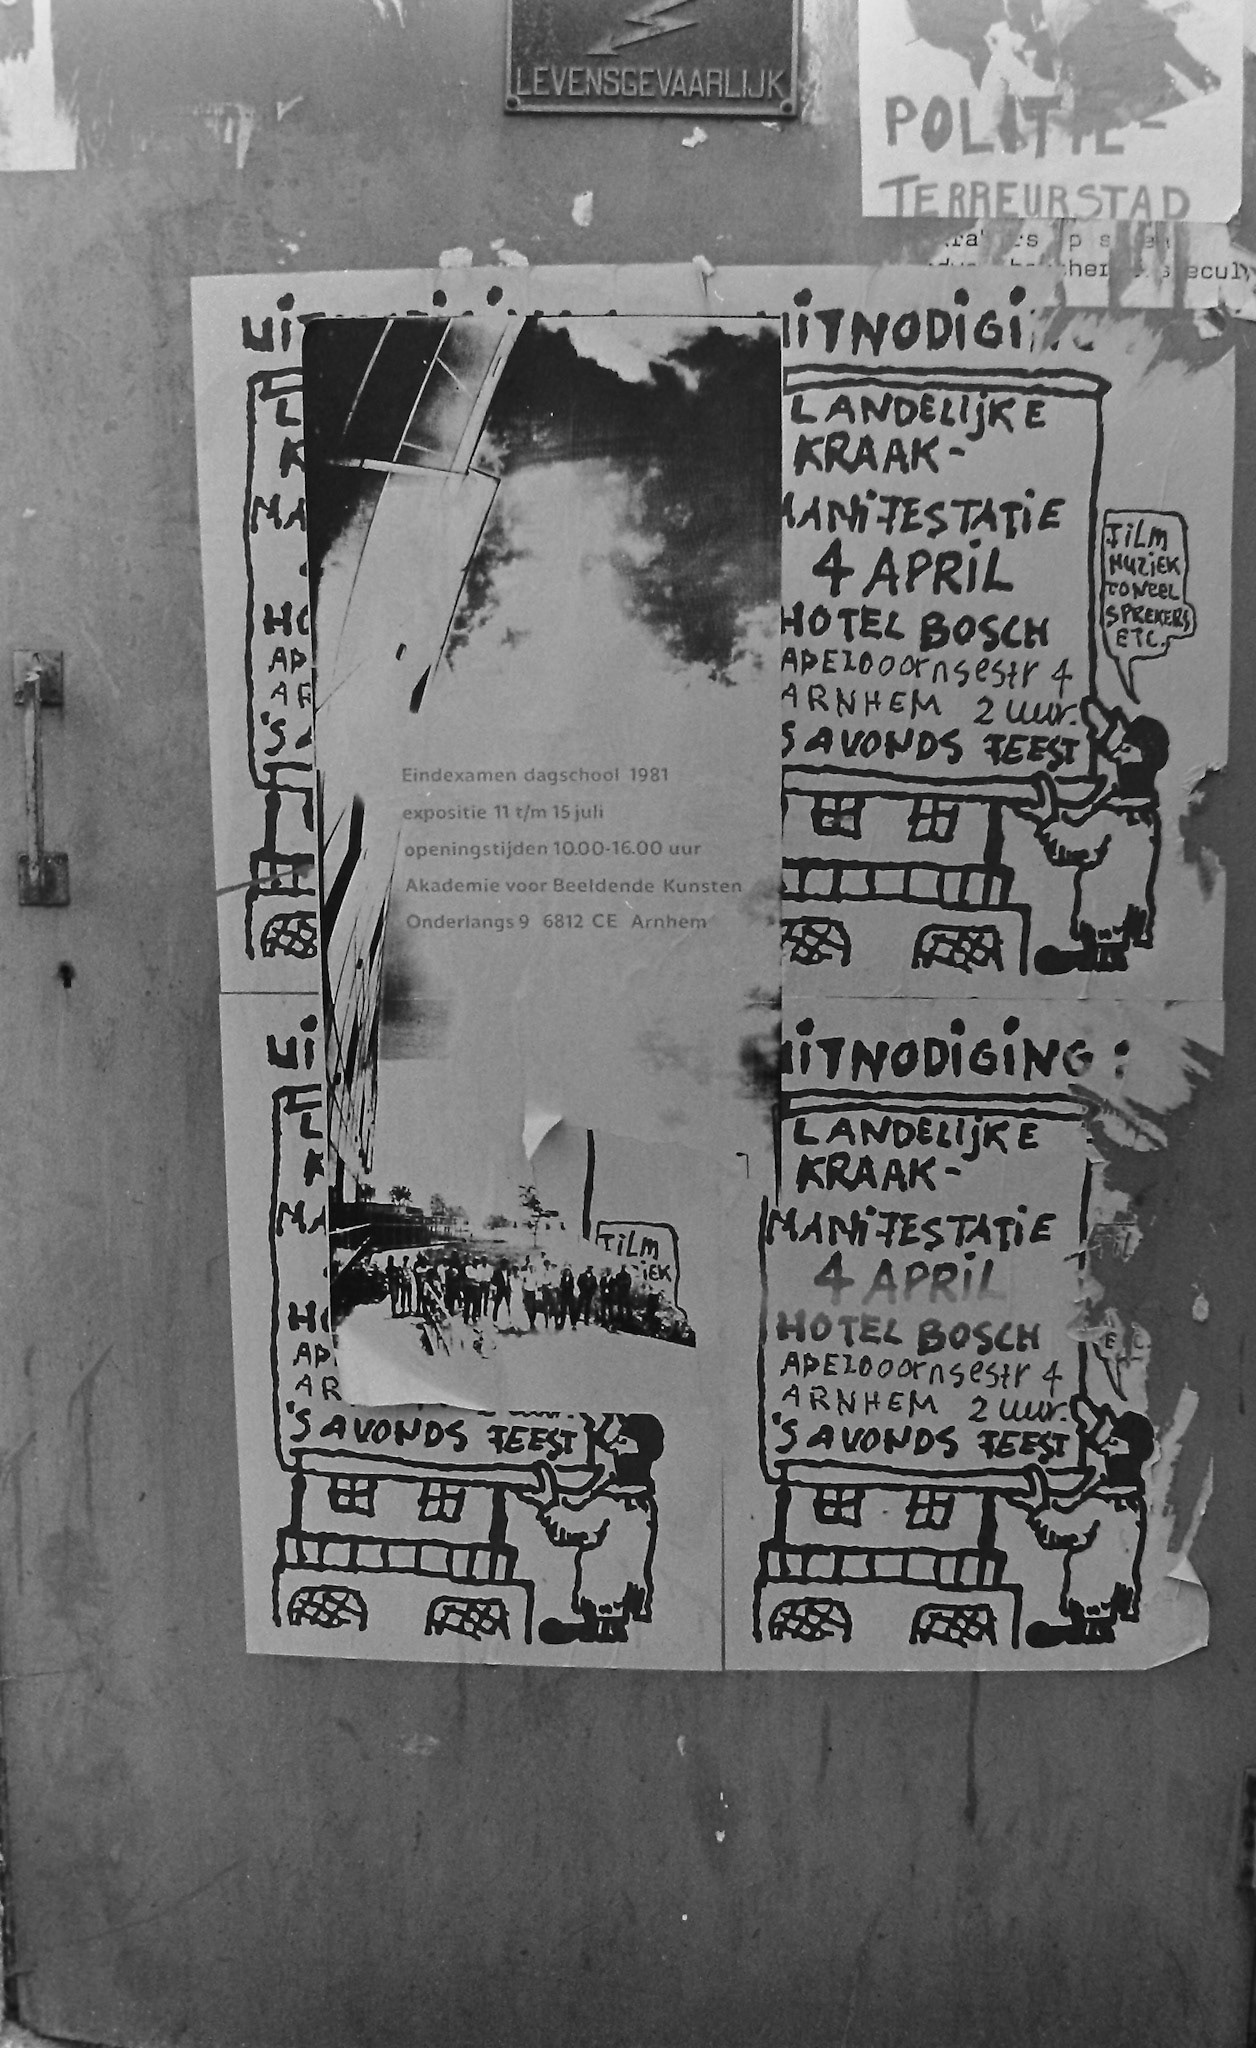 LEVENSGEVAARLIJK
POLITIE-
TERREURSTAD
UITNODIGI
LANDELIJKE
KRAAK-
MANIFESTATIE
4 APRIL
HOTEL BOSCH
APELdOORNSESTR 4
ARNHEM 2 UUR.
'S AVONDS FEEST
FILM
MUZIEK
TONEEL
SPREKERS
ETC.
Eindexamen dagschool 1981
expositie 11 t/m 15 juli
openingstijden 10.00-16.00 uur
Akademie voor Beeldende Kunsten
Onderlangs 9 6812 CE Arnhem
FILM
'S AVONDS FEEST
UITNODIGING:
LANDELIJKE
KRAAK-
MANIFESTATIE
4 APRIL
HOTEL BOSCH
APELdOORNSESTR 4
ARNHEM 2 UUR.
'S AVONDS FEEST